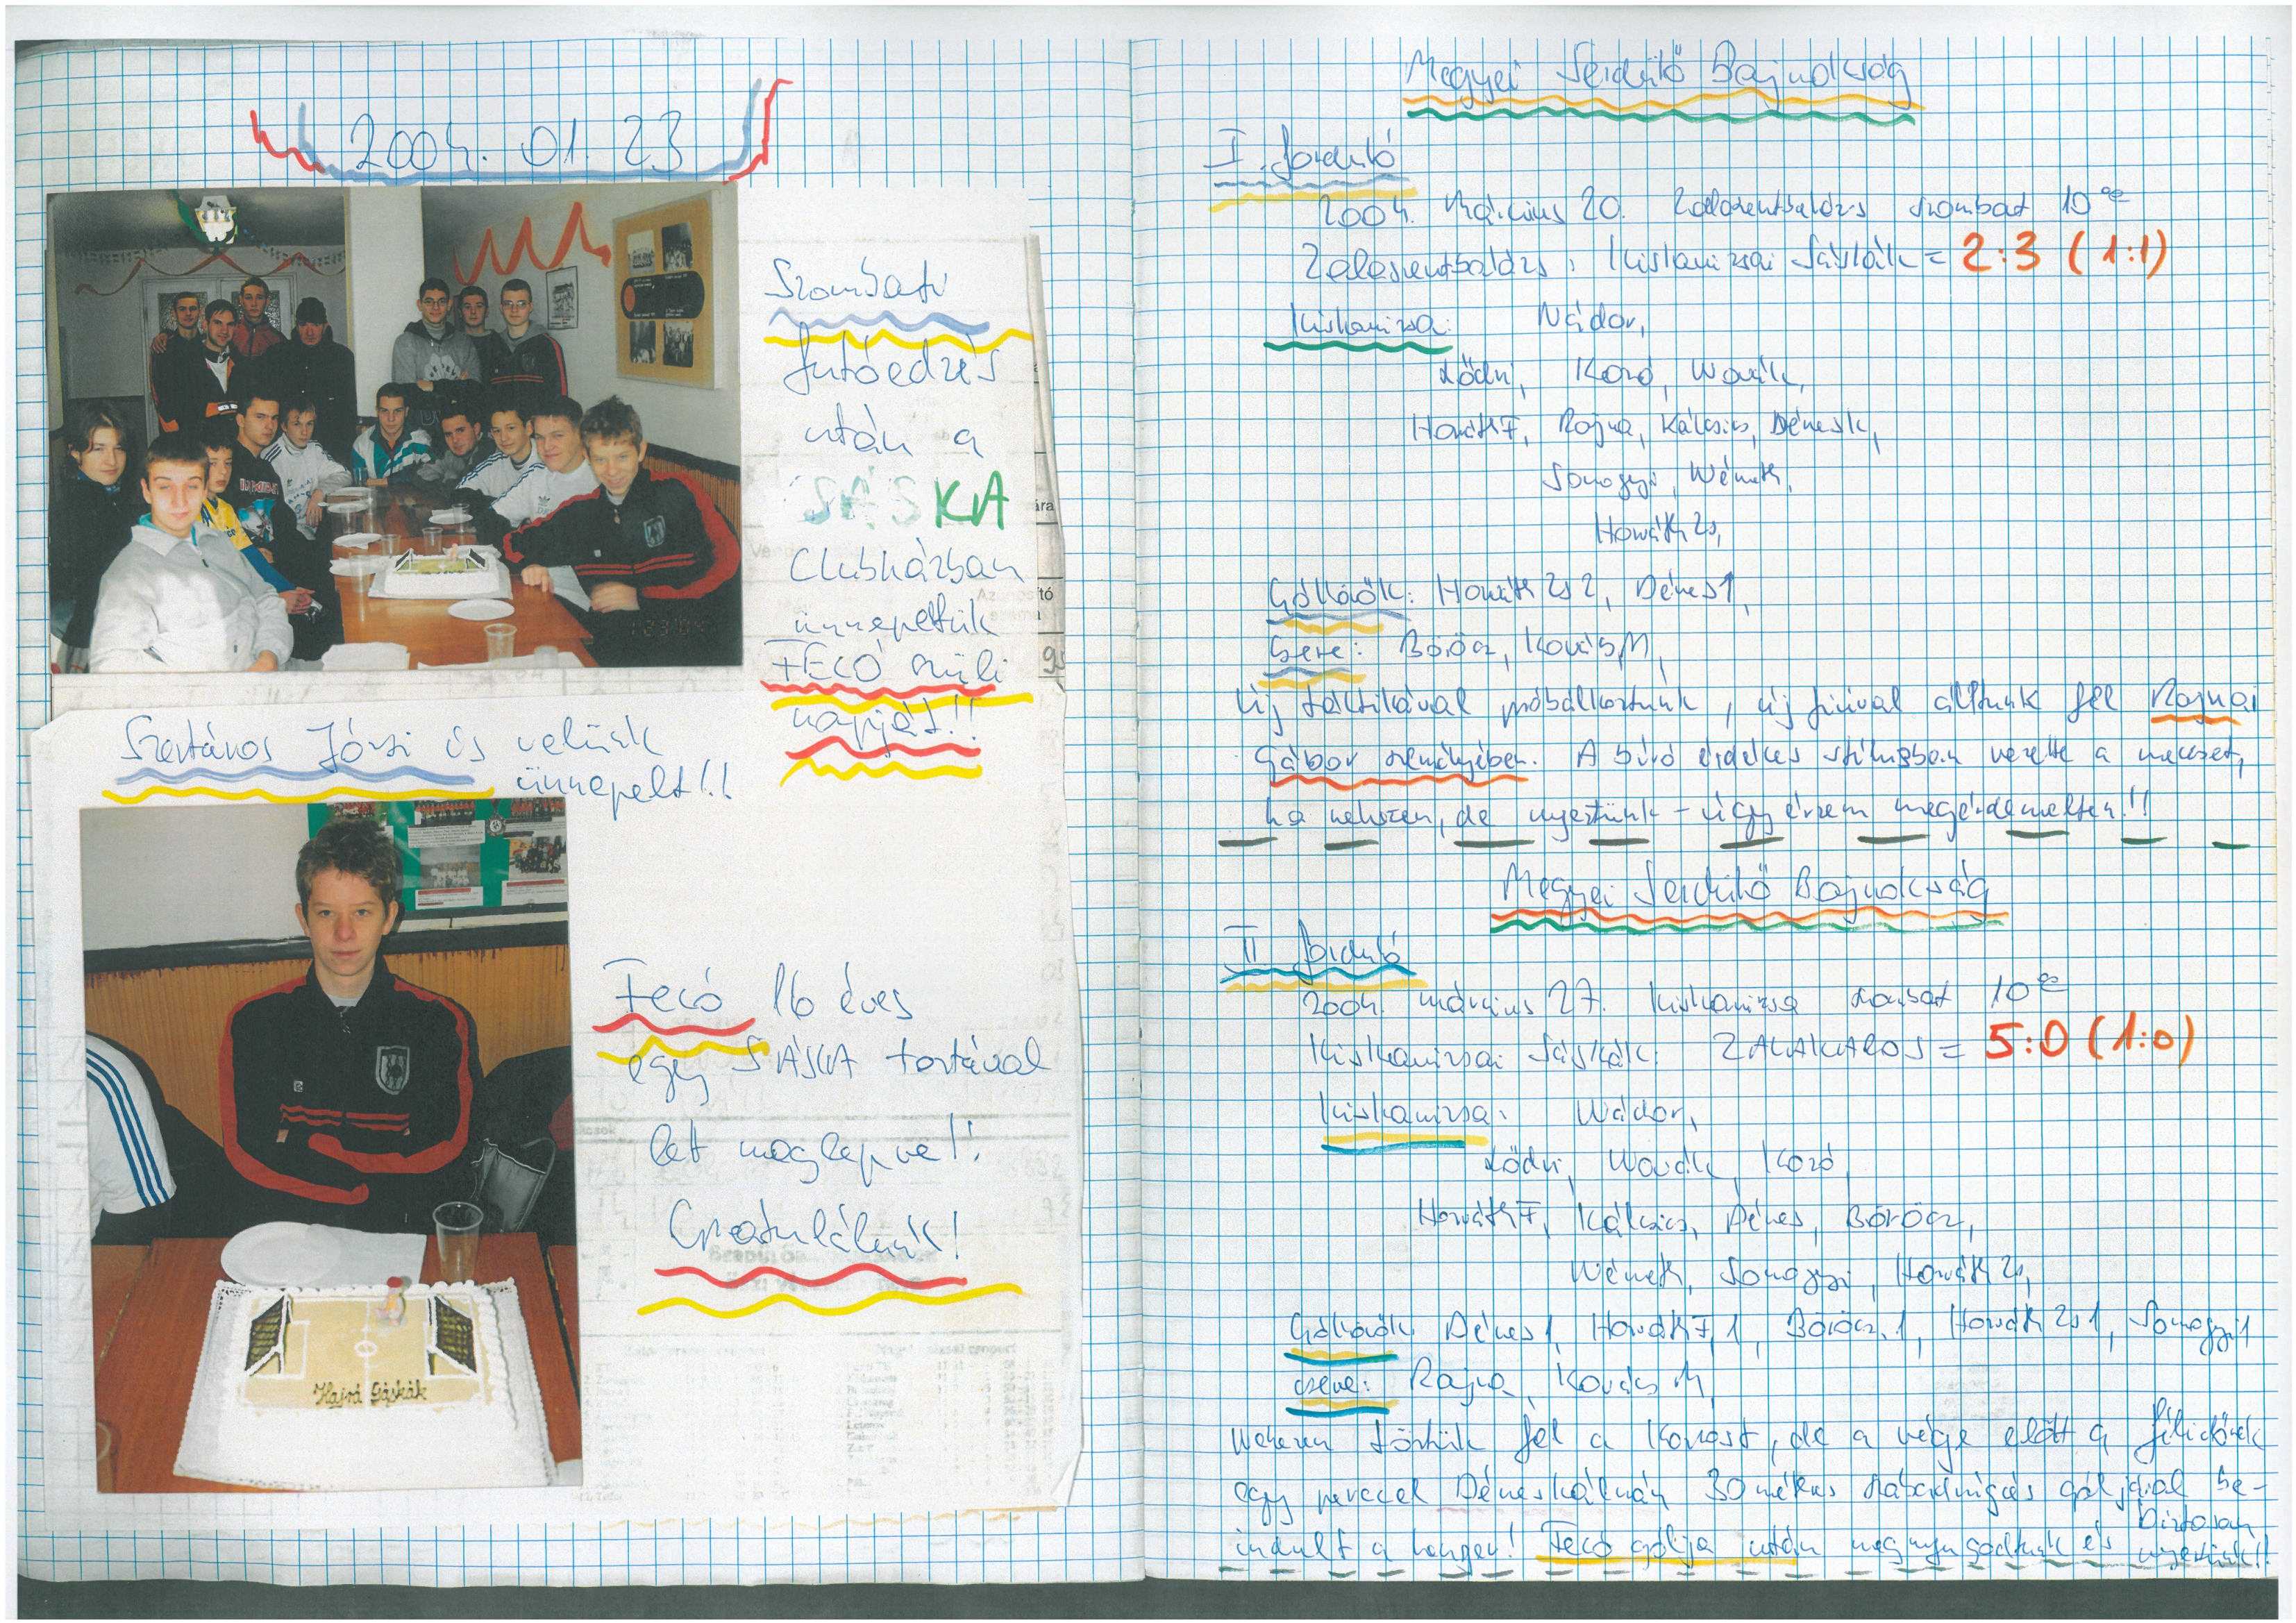 2004. 01. 23
Szombati
futóedzés
után a
SÁSKA
Clubházban
ünnepeltük
FECÓ szüli
napját!!
Szertáros Józsi is velünk
ünnepelt!!
Fecó 16 éves
egy SÁSKA tortával
let meglepve!!
Gratulálunk!
Hajrá Sáskák
Megyei Serdülő Bajnokság
I. forduló
2004. Március 20. Zalaszentbalázs szombat 10
Zalaszentbalázs : Kiskanizsai Sáskák = 2:3 (1:1)
Kiskanizsa: Nádor,
Ködri, Kozó, Novák,
Horváth F, Rajna, Kálcsics, Dénes K,
Somogyi, Németh,
Horváth Zs,
Góllövők: Horváth Zs 2, Dénes 1,
Csere: Böröcz, Kovács M,
Új taktikával próbálkoztunk, új fiúval álltunk fel Rajnai
Gábor személyében. A bíró érdekes stílusban vezette a meccset,
ha nehezen, de nyertünk - úgy érzem megérdemelten!!
Megyei Serdülő Bajnokság
II forduló
2004. március 27. Kiskanizsa szombat 10
Kiskanizsai Sáskák: ZALAKAROS = 5:0 (1:0)
Kiskanizsa: Nádor,
Ködri, Novák, Kozó,
Horváth F, Kálcsics, Dénes, Böröcz,
Németh, Somogyi, Horváth Zs,
Góllövők Dénes 1, Horváth F, 1, Böröcz, 1, Horváth Zs 1, Somogyi 1
csere: Rajna, Kovács M,
Nehezen törtük fel a Karost, de a vége előtt a félidőnek
egy perccel Dénes Kálmán 30 méteres szabadrúgás góljával be-
indult a henger! Fecó gólja után megnyugodtunk és biztosan
nyertünk!!